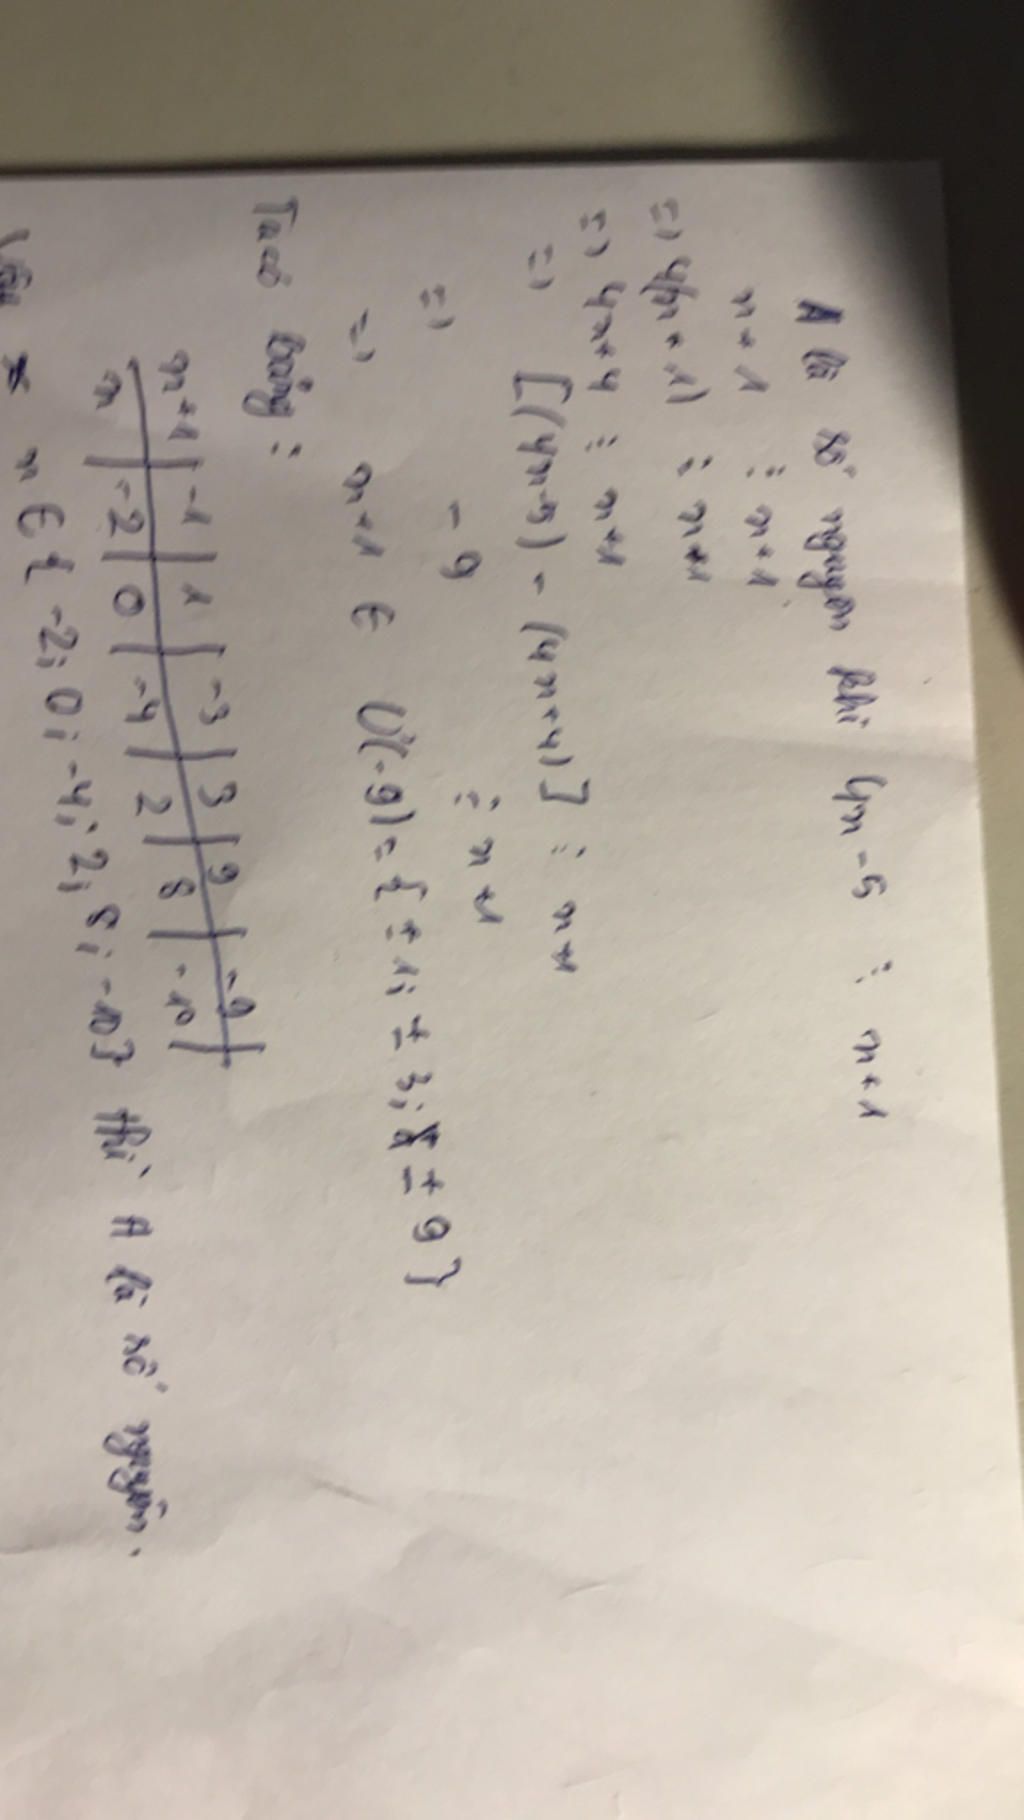 A là số nguyên khi 4n - 5 ⋮ n+1
n+1 ⋮ n+1
=) 4(n+1) ⋮ n+1
=) 4n+4 ⋮ n+1
=) [(4n-5) - (4n+4)] ⋮ n+1
=) -9 ⋮ n+1
=) n+1 ∈ Ư(-9) = { ±1; ±3; ±9}
Ta có bảng :
n+1 | -1 | 1 | -3 | 3 | 9 | -9 |
n | -2 | 0 | -4 | 2 | 8 | -10 |
Vậy n ∈ { -2; 0; -4; 2; 8; -10} thì A là số nguyên.